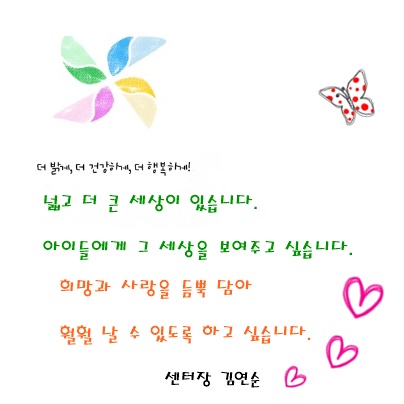 더 밝게, 더 건강하게, 더 행복하게!
넓고 더 큰 세상이 있습니다.
아이들에게 그 세상을 보여주고 싶습니다.
희망과 사랑을 듬뿍 담아
훨훨 날 수 있도록 하고 싶습니다.
센터장 김연순